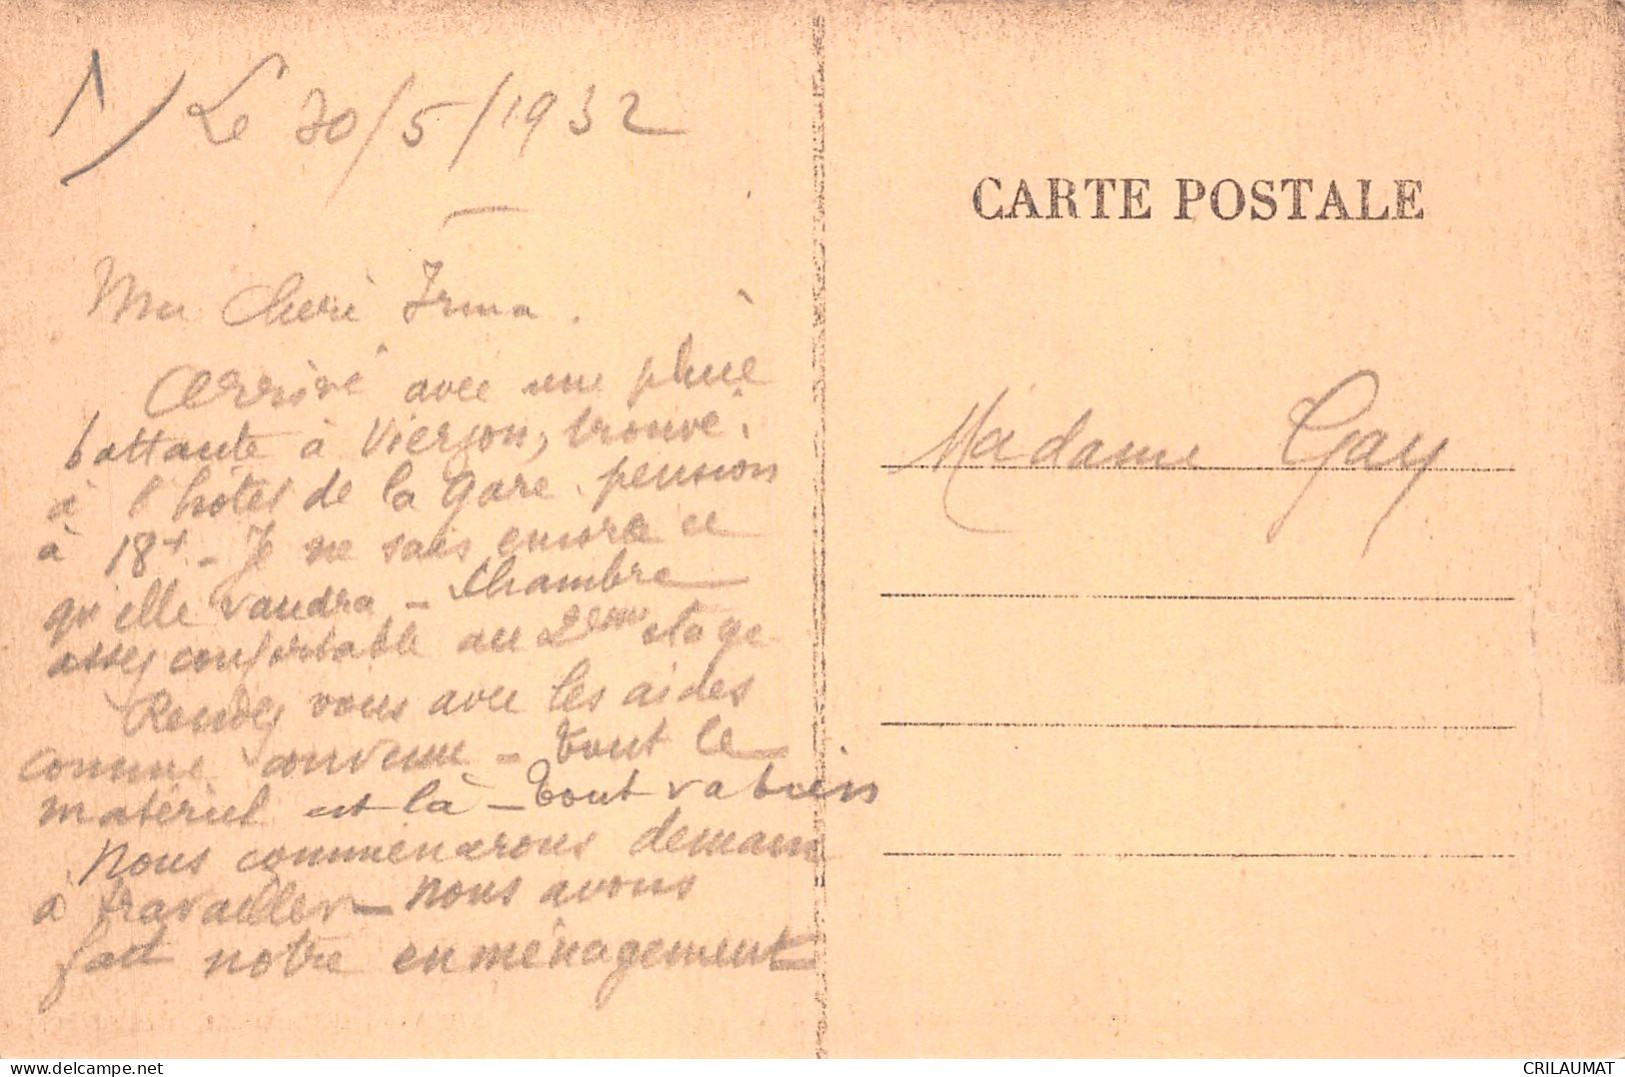 1) Le 30/5/1932
Ma cheri Irma.
Arrivé avec une pluie
battante à Vierzon, trouvé
à l'hôtel de la gare pension
à 18f - Je ne sais encore ce
qu'elle vaudra - Chambre
assez confortable au 2eme etage
Rendez vous avec les aides
comme convenue - tout le
matériel est là - Tout va bien
Nous commencerons demain
à travailler - nous avons
fait notre enménagement
CARTE POSTALE
Madame Gay
delcampe.net
CRILAUMAT